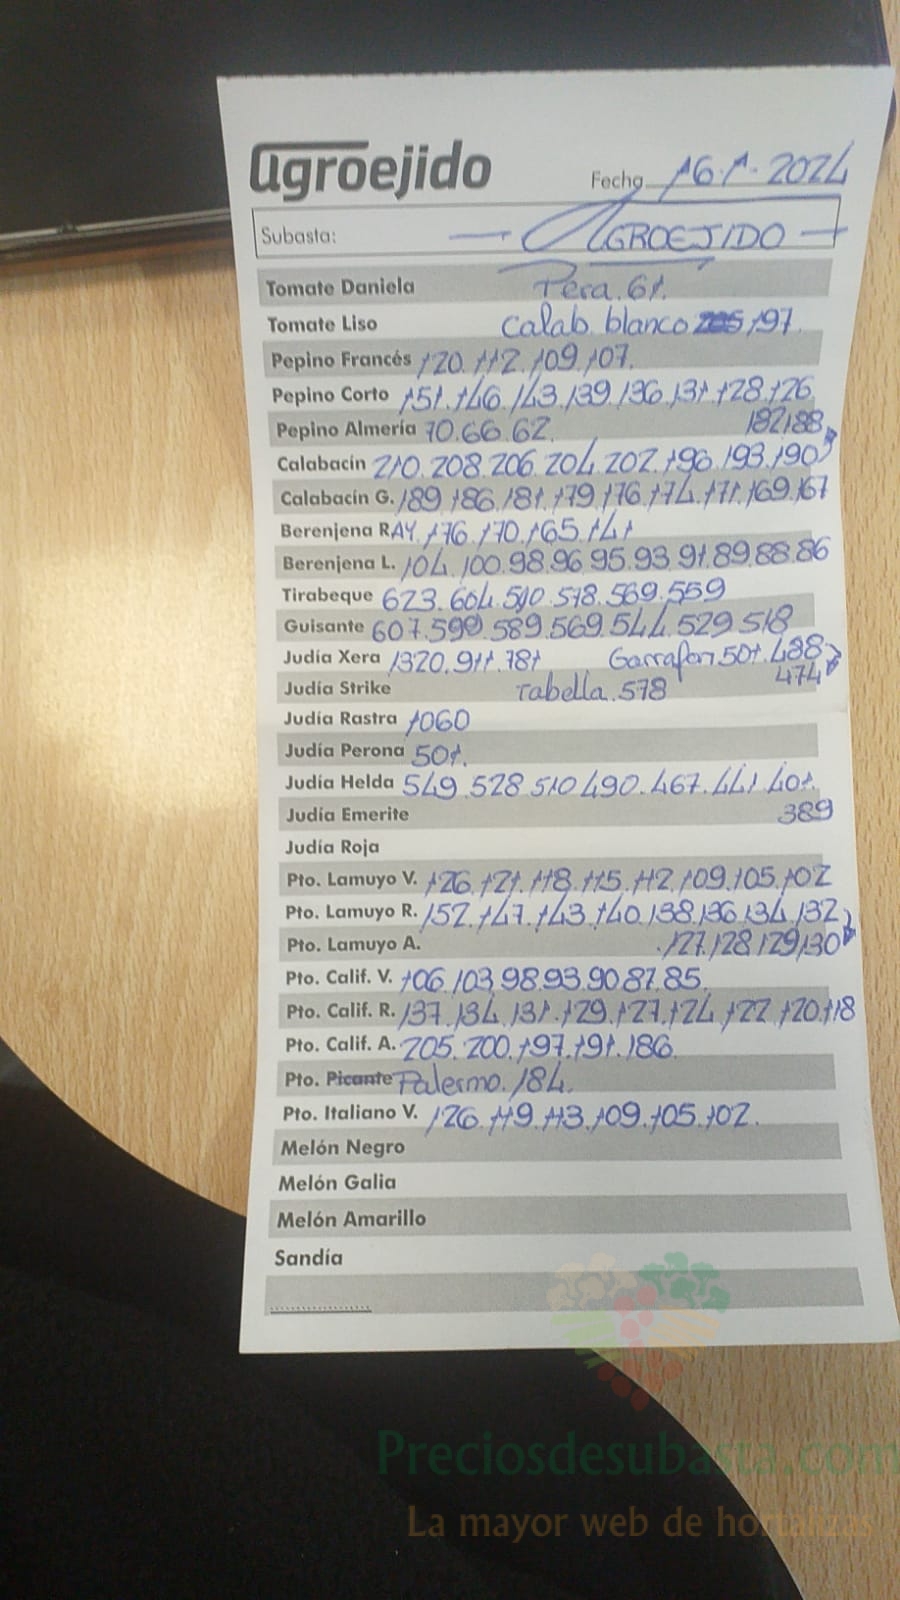 agroejido
Fecha 16.1.2024
Subasta: AGROEJIDO
Tomate Daniela Pera.61.
Tomate Liso Calab. blanco 197.
Pepino Francés 120.112.109.107.
Pepino Corto 151.146.143.139.136.131.128.126
Pepino Almería 70.66.62. 182.188
Calabacín 210.208.206.204.202.196.193.190
Calabacín G. 189.186.181.179.176.174.171.169.167
Berenjena RAY. 176.170.165.141
Berenjena L. 104.100.98.96.95.93.91.89.88.86
Tirabeque 623.604.590.578.569.559
Guisante 607.590.589.569.544.529.518
Judía Xera 1320.911.781 Garrafon 501.488
Judía Strike Tabella.578 474
Judía Rastra 1060
Judía Perona 501.
Judía Helda 549.528.510.490.467.441.401.
Judía Emerite 389
Judía Roja
Pto. Lamuyo V. 126.121.118.115.112.109.105.102
Pto. Lamuyo R. 152.147.143.140.138.136.134.132
Pto. Lamuyo A. .127.128.129.130
Pto. Calif. V. 106.103.98.93.90.87.85.
Pto. Calif. R. 137.134.131.129.127.124.122.120.118
Pto. Calif. A. 205.200.197.191.186.
Pto. Picante Palermo.184.
Pto. Italiano V. 126.119.113.109.105.102.
Melón Negro
Melón Galia
Melón Amarillo
Sandía
Preciosdesubasta.com
La mayor web de hortalizas